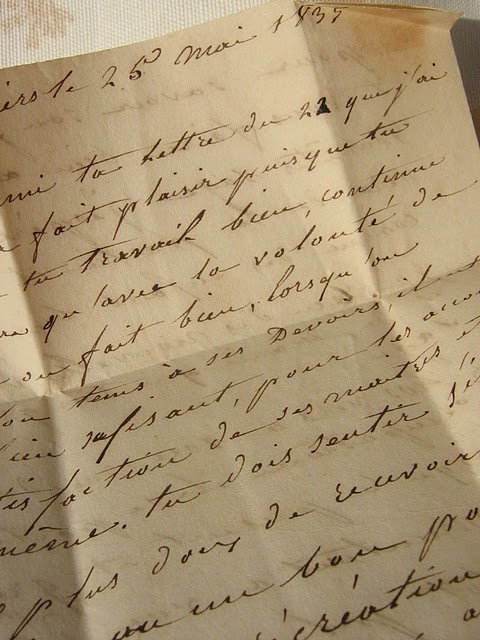 iers le 25 mai 1835
ami ta lettre du 22 que j'ai
a fait plaisir puisque tu
tu travail bien, continue
ra qu'avec la volonté de
on fait bien, lorsqu'on
bon tems à ses devoirs, il
bien sufisant, pour les
tisfaction de ses maitres
même. tu dois sentir
plus doux de recevoir
ou un bon
récréation